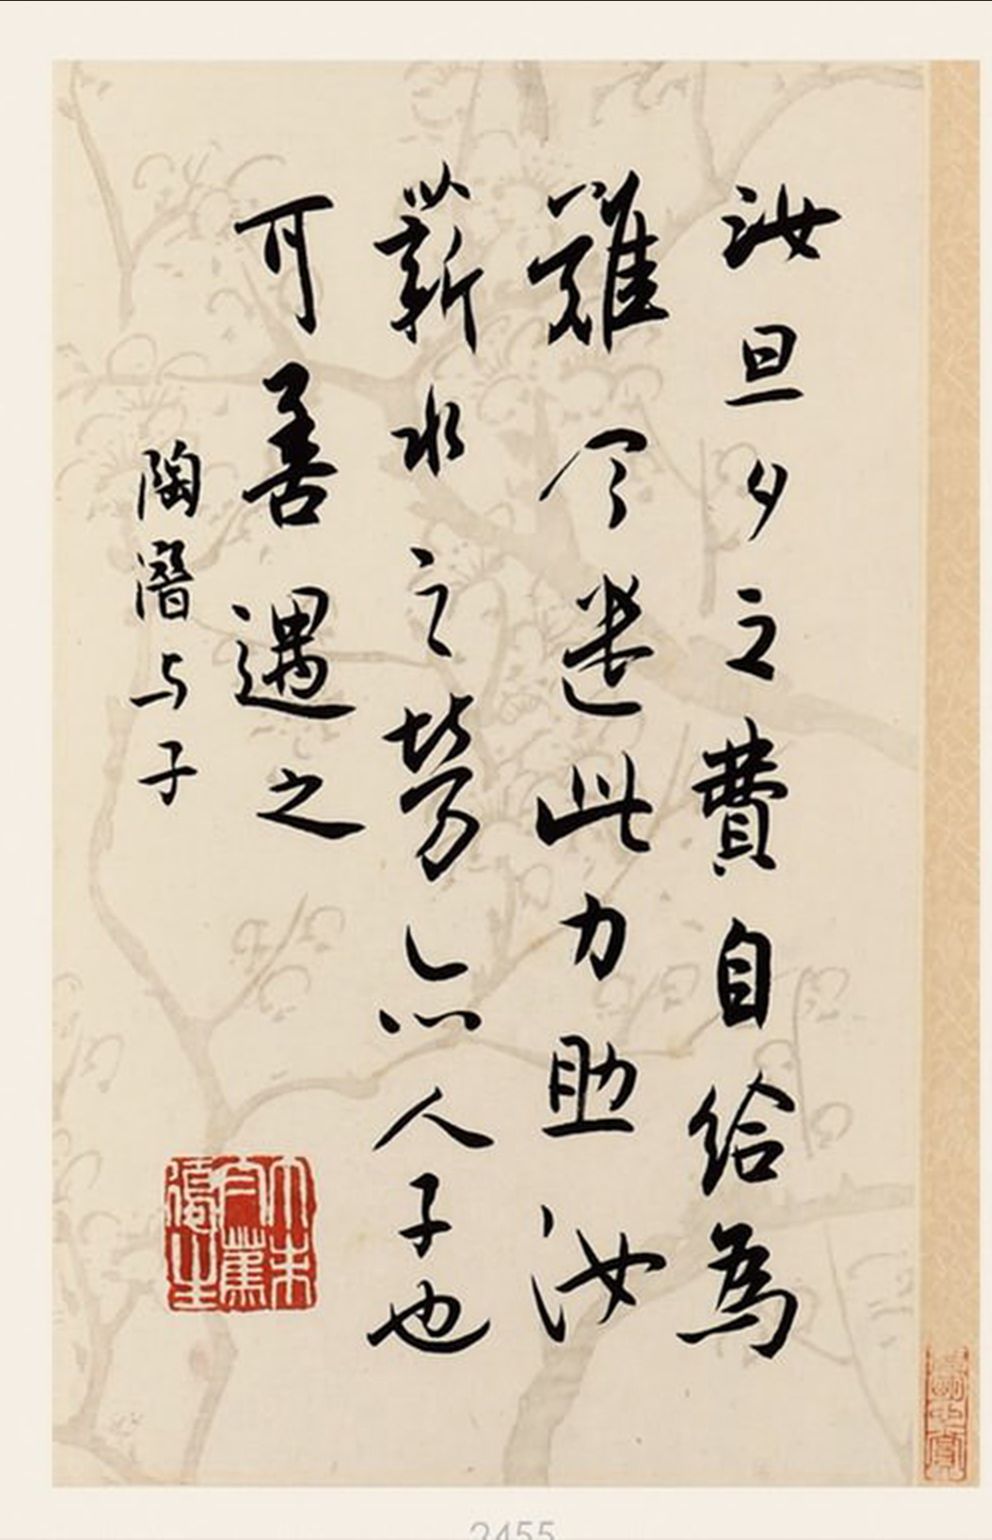 汝旦夕之費自給為
難今遣此力助汝
薪水之勞亦人子也
可善遇之
陶潛与子
2455